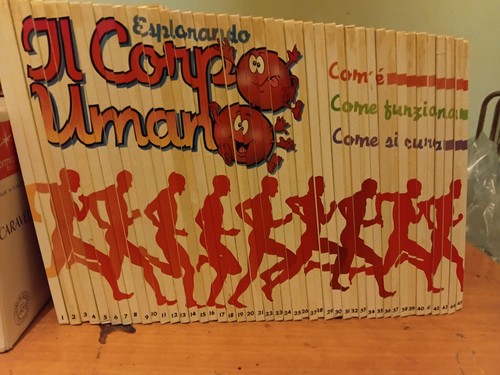 Esplorando
Il Corpo
Umano
Com'è
Come funziona
Come si cura
CARAV
1 2 3 4 5 6 7 8 9 10 11 12 13 14 15 16 17 18 19 20 21 22 23 24 25 26 27 28 29 30 31 32 33 34 35 36 37 38 39 40